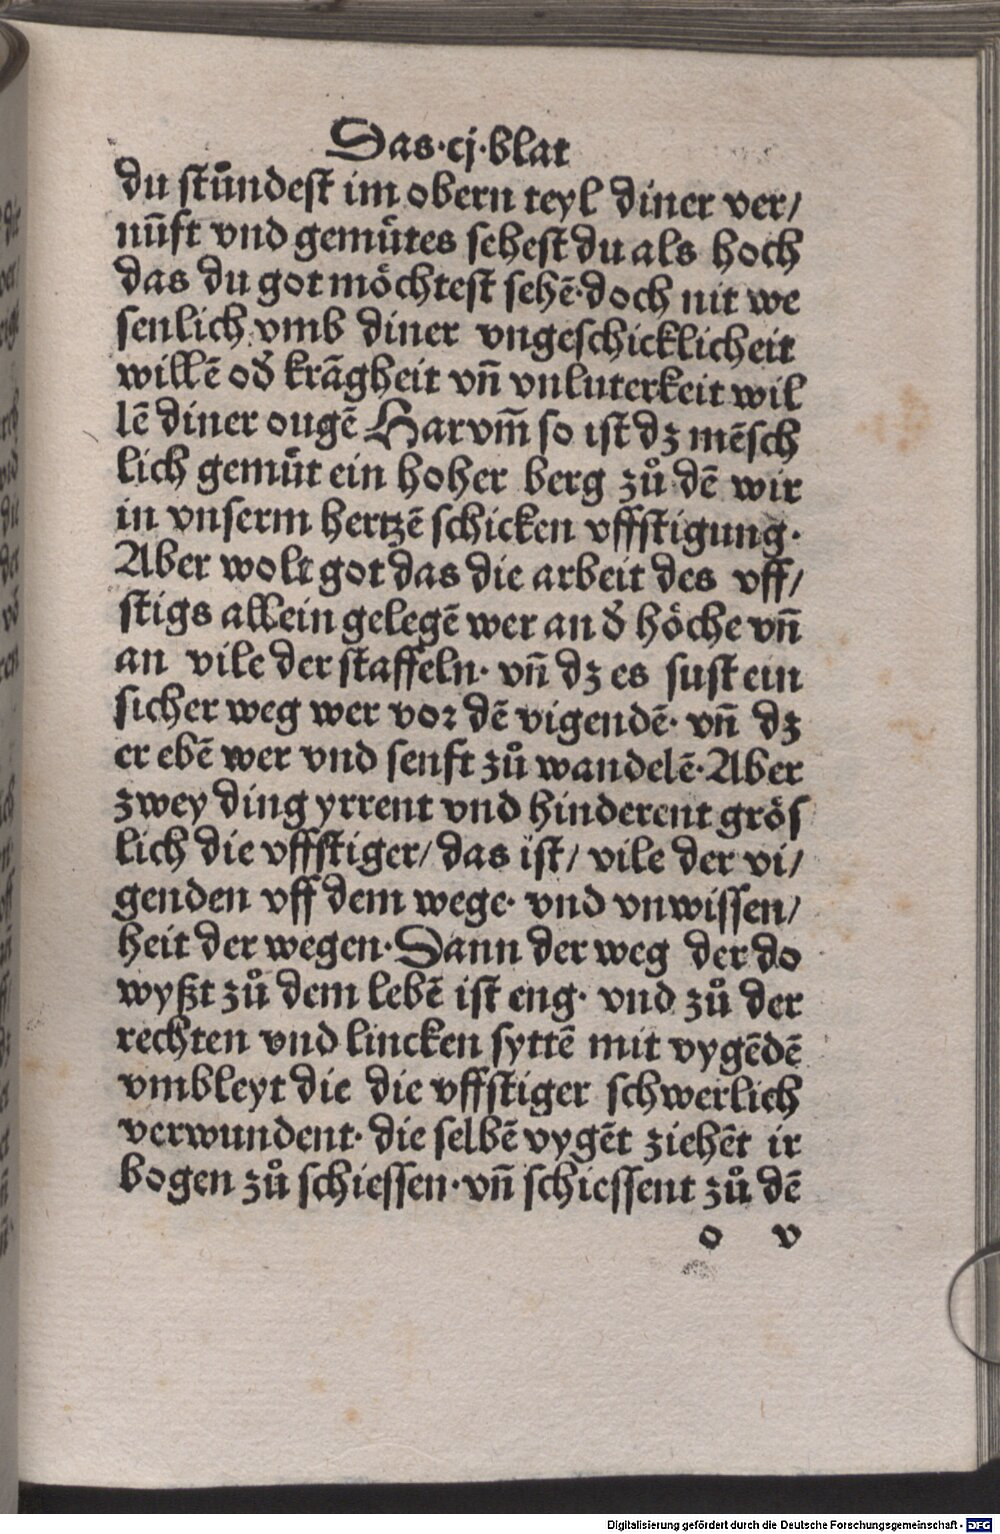 Das·cj·blat
du stündest im obern teyl diner ver/
nūft vnd gemütes sehest du als hoch
das du got möchtest sehē·doch nit we
senlich vmb diner vngeschicklicheit
willē od̛ krāgheit vn̄ vnluterkeit wil
lē diner ougē Harvm̄ so ist dz mēsch
lich gemüt ein hoher berg zů dē wir
in vnserm hertzē schicken vffstigung·
Aber wolt got das die arbeit des vff/
stigs allein gelegē wer an d̛ höche vn̄
an vile der staffeln· vn̄ dz es sust ein
sicher weg wer vor dē vigendē· vn̄ dz
er ebē wer vnd senft zů wandelē·Aber
zwey ding yrrent vnd hinderent grös
lich die vffstiger/ das ist/ vile der vi/
genden vff dem wege· vnd vnwissen/
heit der wegen·Dann der weg der do
wyßt zů dem lebē ist eng· vnd zů der
rechten vnd lincken syttē mit vygēdē
vmbleyt die die vffstiger schwerlich
verwundent· die selbē vygēt ziehēt ir
bogen zů schiessen·vn̄ schiessent zů dē
o v
Digitalisierung gefördert durch die Deutsche Forschungsgemeinschaft - DFG